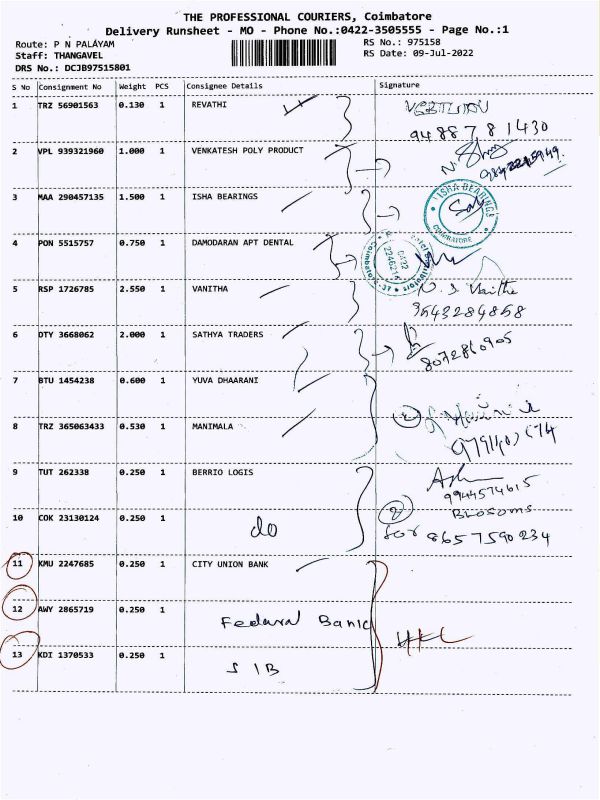 THE PROFESSIONAL COURIERS, Coimbatore
Delivery Runsheet - MO - Phone No.:0422-3505555 - Page No.:1
Route: P N PALAYAM RS No.: 975158
Staff: THANGAVEL RS Date: 09-Jul-2022
DRS No.: DCJB97515801
S No Consignment No Weight PCS Consignee Details Signature
1 TRZ 56901563 0.130 1 REVATHI
9488781430
2 VPL 939321960 1.000 1 VENKATESH POLY PRODUCT
3 MAA 290457135 1.500 1 ISHA BEARINGS
ISHA BEARINGS
COIMBATORE
4 PON 5515757 0.750 1 DAMODARAN APT DENTAL
0422
Coimbatore-37
5 RSP 1726785 2.550 1 VANITHA
6 DTY 3668062 2.000 1 SATHYA TRADERS
8072860905
7 BTU 1454238 0.600 1 YUVA DHAARANI
8 TRZ 365063433 0.530 1 MANIMALA
9 TUT 262338 0.250 1 BERRIO LOGIS
9944574615
BLOSOMS
10 COK 23130124 0.250 1 do
for 8657590234
11 KMU 2247685 0.250 1 CITY UNION BANK
12 AWY 2865719 0.250 1 Fedaral Bank
13 KDI 1370533 0.250 1 SIB